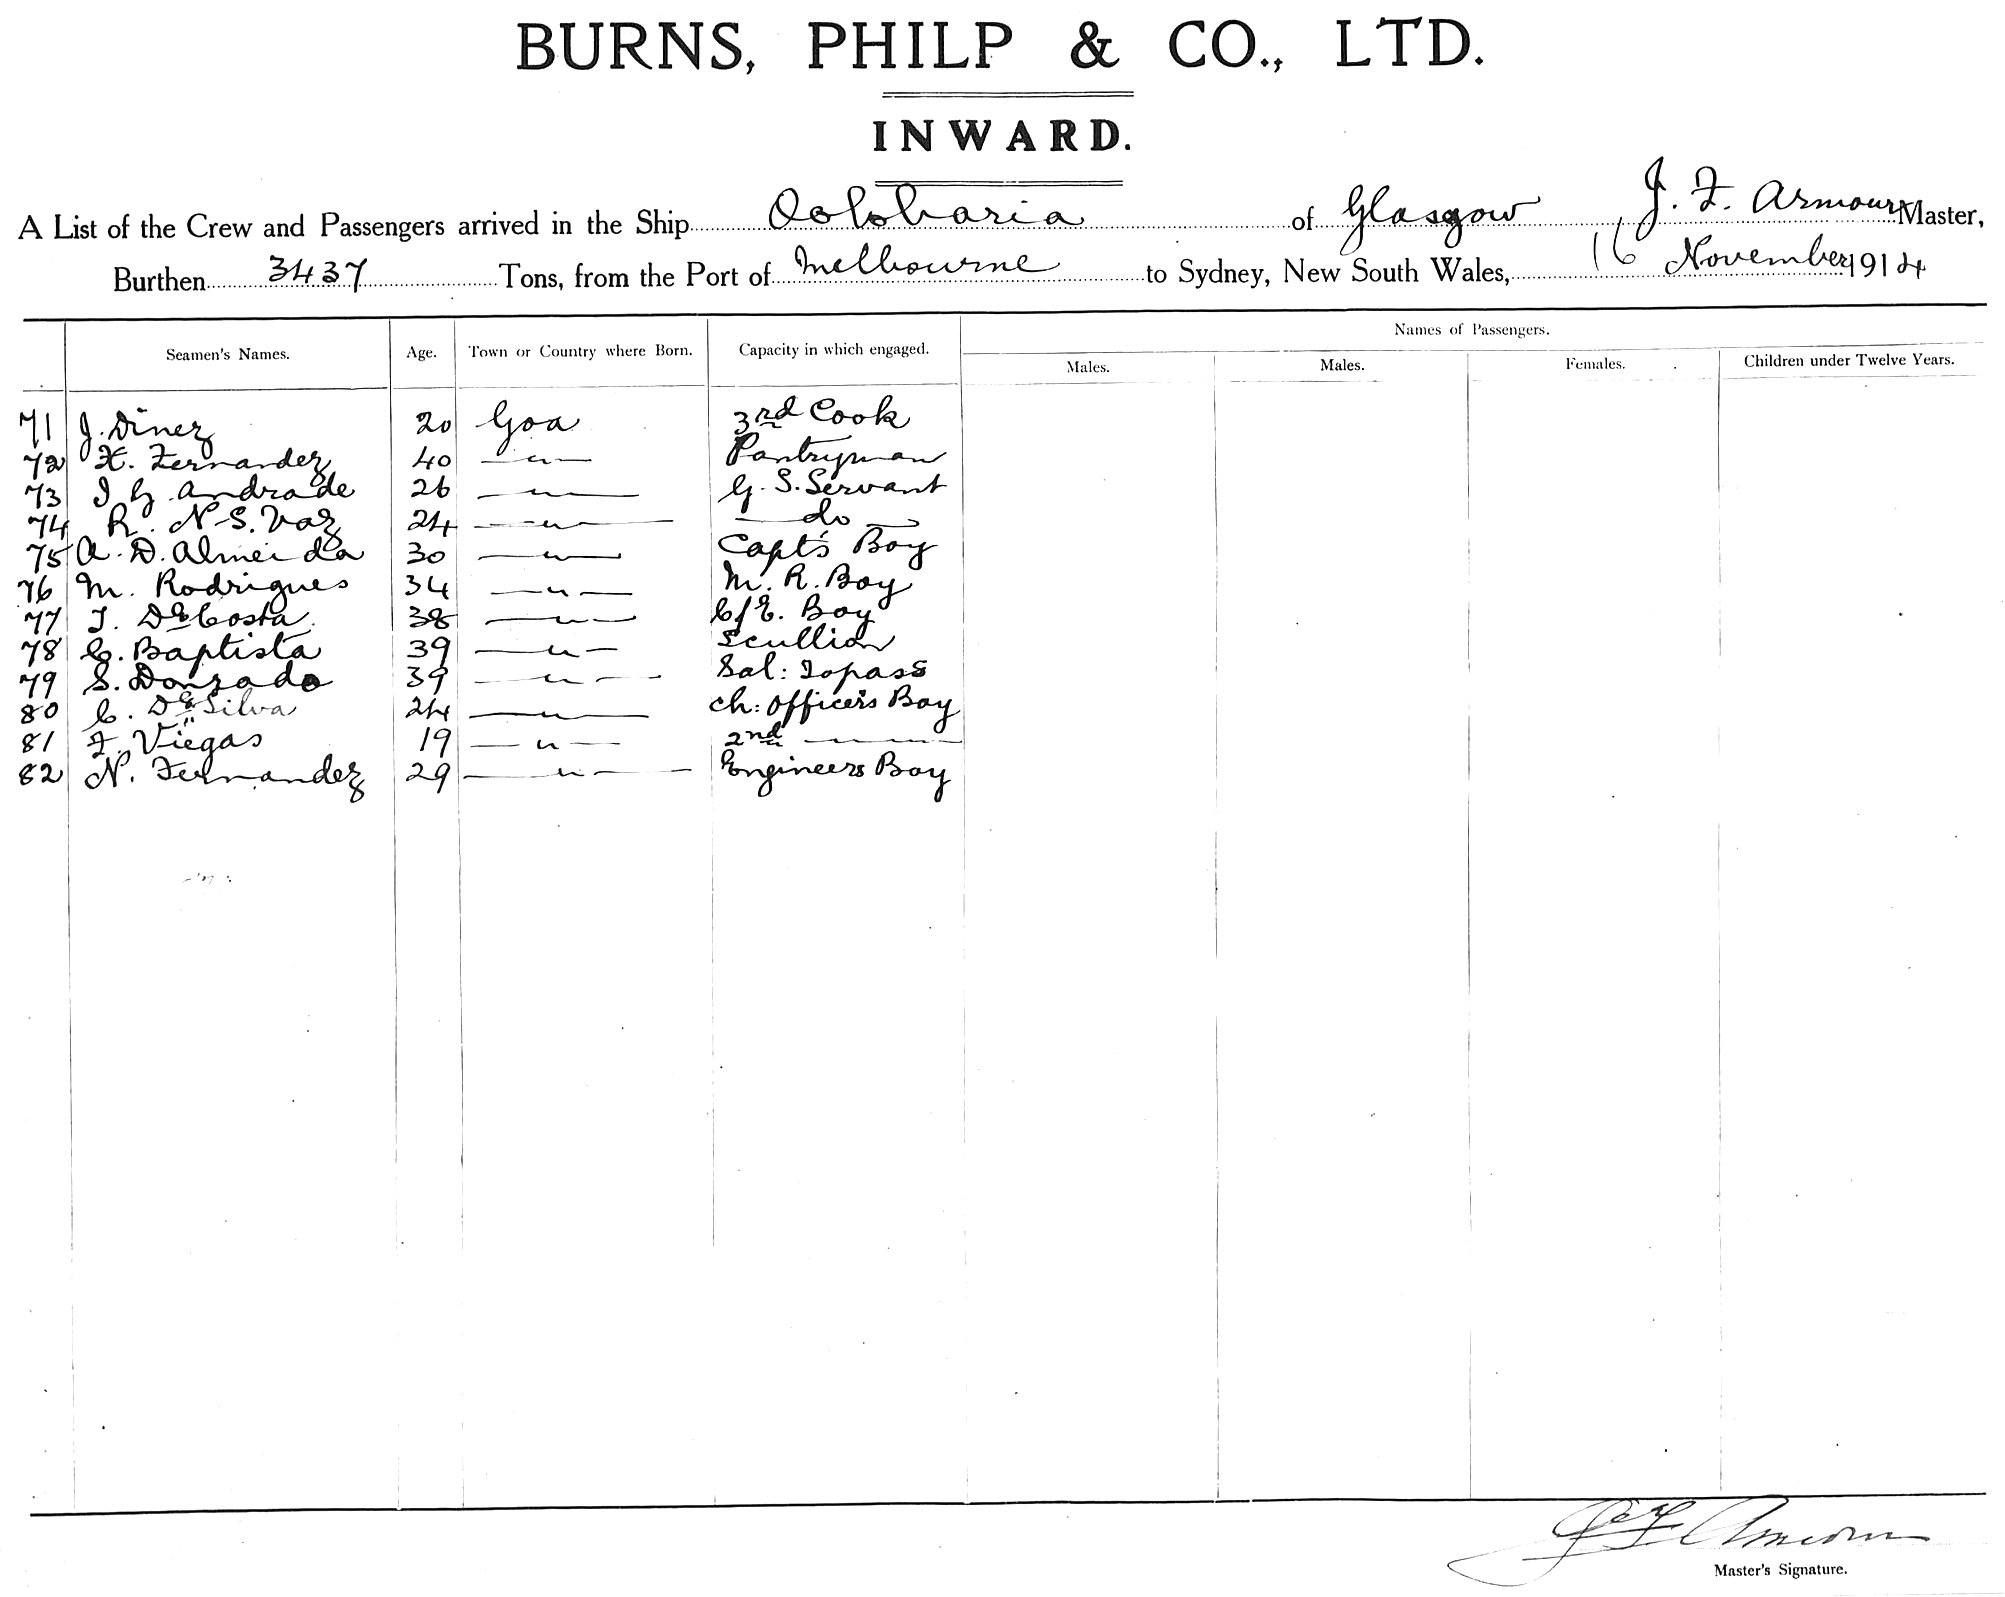 BURNS, PHILP & CO., LTD.
INWARD.
A List of the Crew and Passengers arrived in the Ship Ooloharia of Glasgow J. F. Armour Master,
Burthen 3437 Tons, from the Port of Melbourne to Sydney, New South Wales, 16 November 1914
Names of Passengers.
Seamen's Names. Age. Town or Country where Born. Capacity in which engaged. Males. Males. Females. Children under Twelve Years.
71 J. Dinez 20 Goa 3rd Cook
72 X. Fernandez 40 —"— Pantryman
73 I G. Andrade 26 —"— G. S. Servant
74 R. N S. Vaz 24 —"— —do—
75 A. D. Almeida 30 —"— Capt's Boy
76 M. Rodrigues 34 —"— M. R. Boy
77 J. De Costa 38 —"— C/E. Boy
78 C. Baptista 39 —"— Scullion
79 S. Donzado 39 —"— Sal: Topass
80 C. De Silva 24 —"— Ch: Officer's Boy
81 F. Viegas 19 —"— 2nd ———
82 N. Fernandez 29 —"— Engineers Boy
Master's Signature.